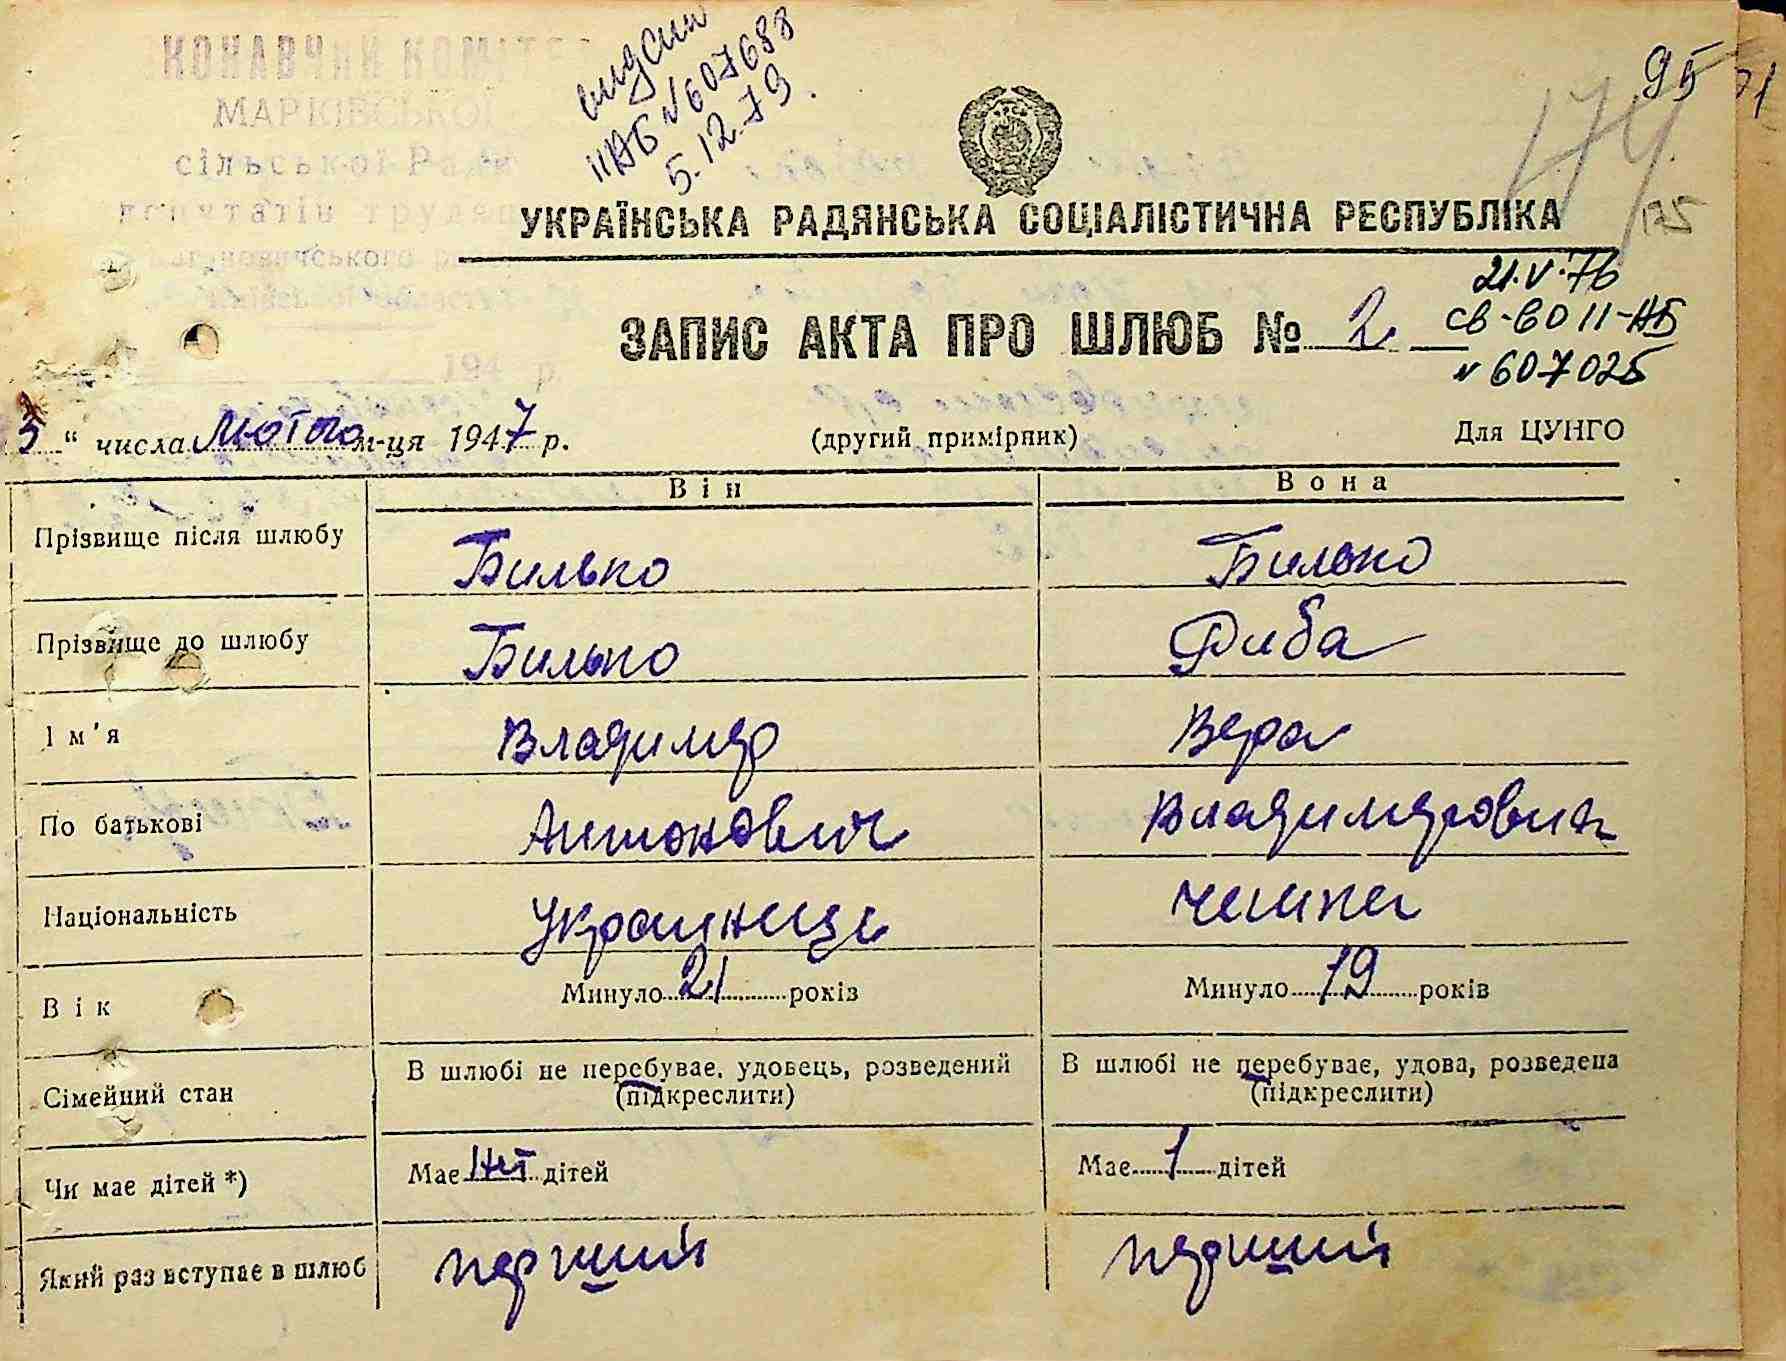 КОНАВЧИЙ КОМІТЕ
МАРКІВСЬКОЇ
сільської Ради
депутатів трудящ
видан
II АБ № 607688
5.12.79.
95
71
174
175
УКРАЇНСЬКА РАДЯНСЬКА СОЦІАЛІСТИЧНА РЕСПУБЛІКА
21.V.76
св-во II-АБ
№ 607025
ЗАПИС АКТА ПРО ШЛЮБ № 2
194 р.
5 " числа Лютого м-ця 1947 р. (другий примірник) Для ЦУНГО
Він Вона
Прізвище після шлюбу Билько Билько
Прізвище до шлюбу Билько Риба
Ім'я Владимир Вера
По батькові Антонович Владимирович
Національність Украинець чешка
Вік Минуло 21 років Минуло 19 років
Сімейний стан В шлюбі не перебуває, удовець, розведений В шлюбі не перебуває, удова, розведена
(підкреслити) (підкреслити)
Чи має дітей *) Має нет дітей Має 1 дітей
Який раз вступає в шлюб перший перший